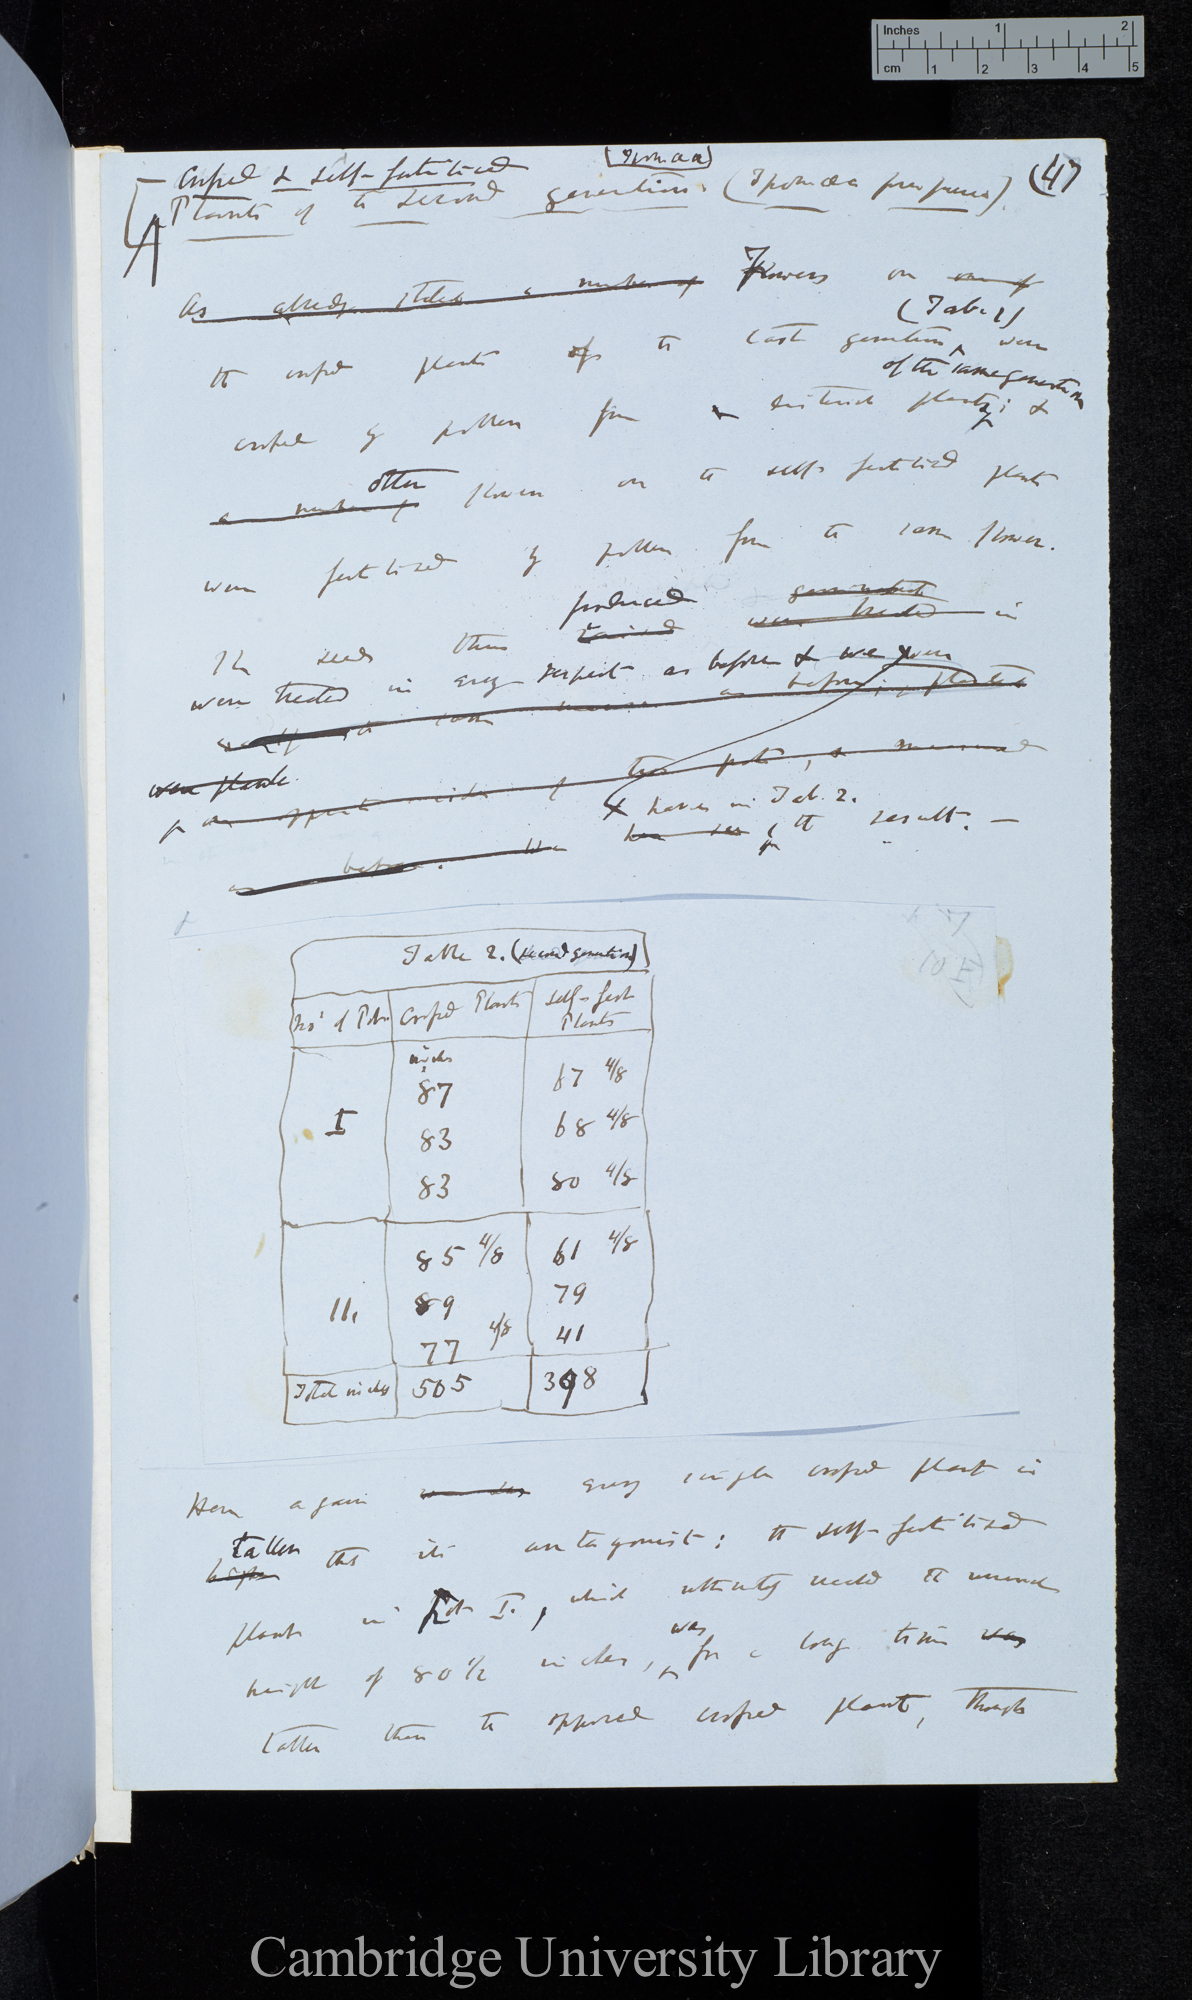 Inches 1 2
cm 1 2 3 4 5
(Ipomœa)
Crossed & self-fertilised (47
Plants of the second generation. (Ipomœa purpurea).
As already stated a number of Flowers on one of
(Tab. 1)
the crossed plants of the last generation, were
of the same generation
crossed by pollen from a distinct plant; &
other
a number of flowers on the self-fertilised plants
were fertilised by pollen from the same flower.
produced germinated
The seeds thus raised were treated in
were treated in every respect as before & we given
as before; planted
were plants
on opposite sides of two pots, & measured
have in Tab. 2.
as before. the result. —
Table 2. (second generation)
No' of Pots Crossed Plants Self-fert Plants
inches
87 67 4/8
I 83 68 4/8
83 80 4/8
85 4/8 61 4/8
II. 89 79
77 4/8 41
Total inches 505 398
Here again every single crossed plant is
taller
higher than its antagonist: the self-fertilised
plant in Pot I., which ultimately reached the unusual
was
height of 80 1/2 inches, for a long time was
taller than the opposed crossed plant, though
Cambridge University Library